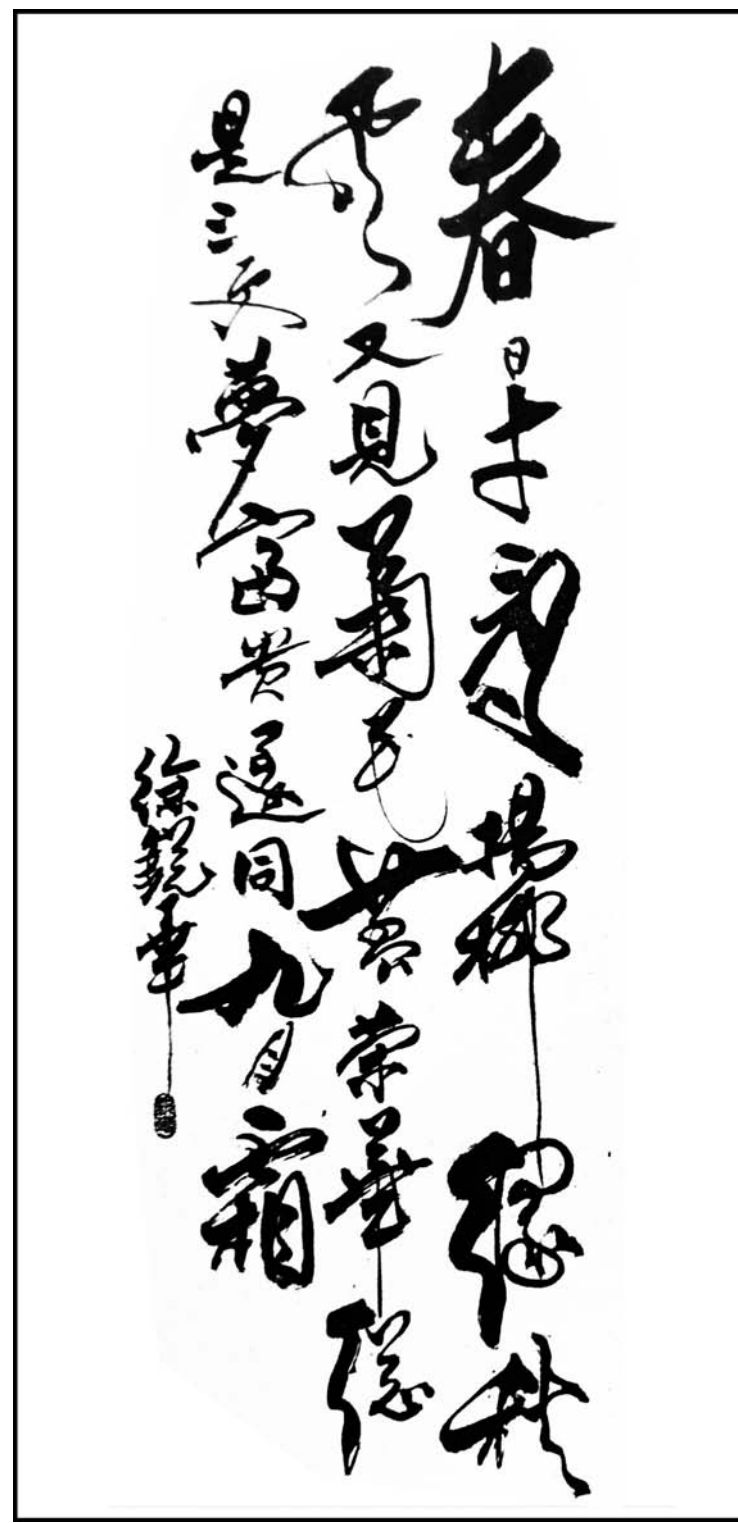 春日才看楊柳綠秋
風又見菊花黄榮華總
是三更夢富貴還同九月霜
徐銳